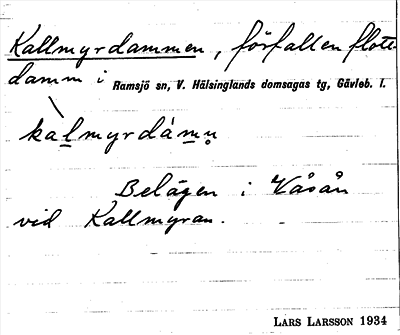 Kallmyrdammen, förfallen flott-
damm i Ramsjö sn, V. Hälsinglands domsagas tg, Gävleb. l.
kàlmyrdámn̥
Belägen i Våsån
vid Kallmyran.
LARS LARSSON 1934